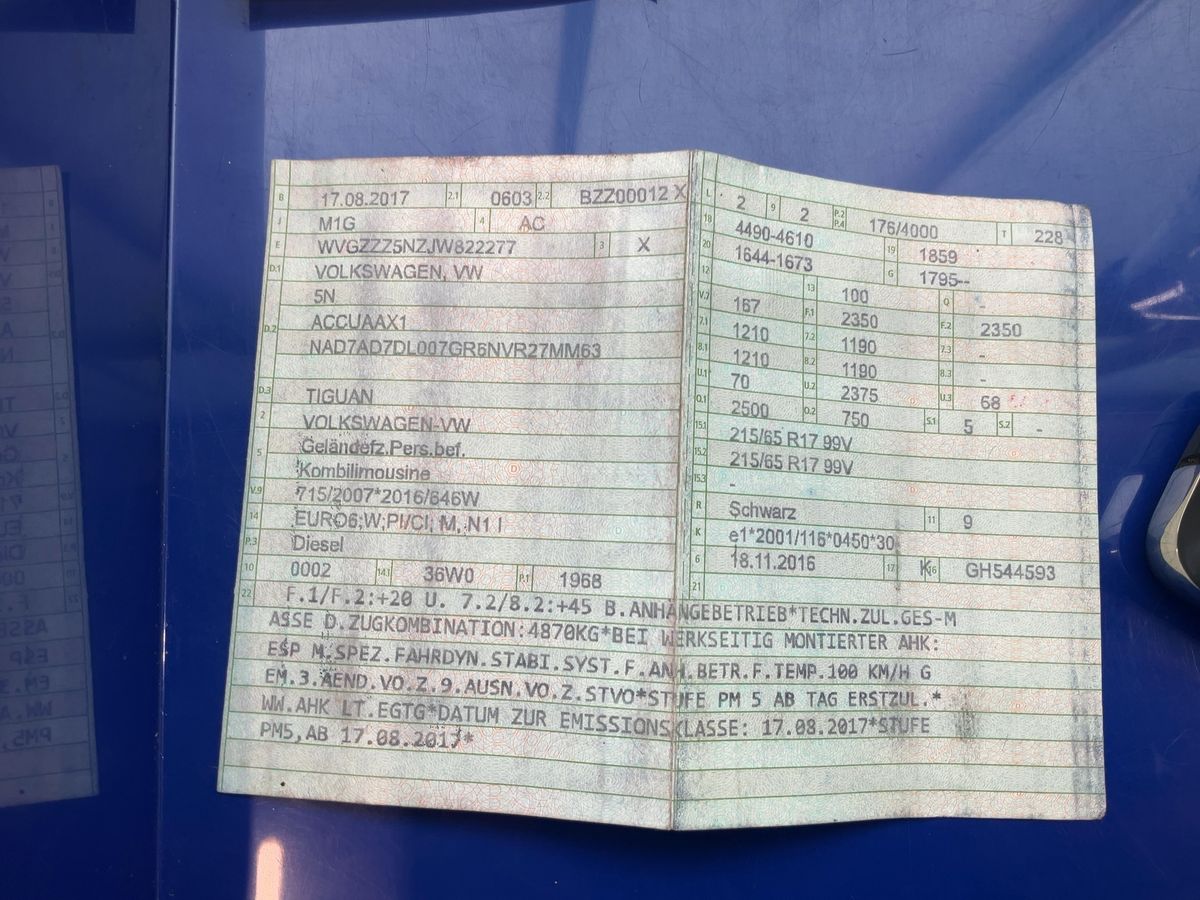 B 17.08.2017 2.1 0603 2.2 BZZ00012 X
J M1G 4 AC
E WVGZZZ5NZJW822277 3 X
D.1 VOLKSWAGEN, VW
5N
D.2 ACCUAAX1
NAD7AD7DL007GR6NVR27MM63
D.3 TIGUAN
2 VOLKSWAGEN-VW
5 Geländefz.Pers.bef.
Kombilimousine
V.9 715/2007*2016/646W
14 EURO6;W;PI/CI; M, N1 I
P.3 Diesel
10 0002 14.1 36W0 P.1 1968
L 2 9 2 P.2 P.4 176/4000 T 228
18 4490-4610 19 1859
20 1644-1673 G 1795--
12 13 100 Q -
V.7 167 F.1 2350 F.2 2350
7.1 1210 7.2 1190 7.3 -
8.1 1210 8.2 1190 8.3 -
U.1 70 U.2 2375 U.3 68
O.1 2500 O.2 750 S.1 5 S.2 -
15.1 215/65 R17 99V
15.2 215/65 R17 99V
15.3 -
R Schwarz 11 9
K e1*2001/116*0450*30
6 18.11.2016 17 K 16 GH544593
21
22 F.1/F.2:+20 U. 7.2/8.2:+45 B.ANHÄNGEBETRIEB*TECHN.ZUL.GES-M
ASSE D.ZUGKOMBINATION:4870KG*BEI WERKSEITIG MONTIERTER AHK:
ESP M.SPEZ.FAHRDYN.STABI.SYST.F.ANH.BETR.F.TEMP.100 KM/H G
EM.3.AEND.VO.Z.9.AUSN.VO.Z.STVO*STUFE PM 5 AB TAG ERSTZUL.*
WW.AHK LT.EGTG*DATUM ZUR EMISSIONSKLASSE: 17.08.2017*STUFE
PM5,AB 17.08.2017*